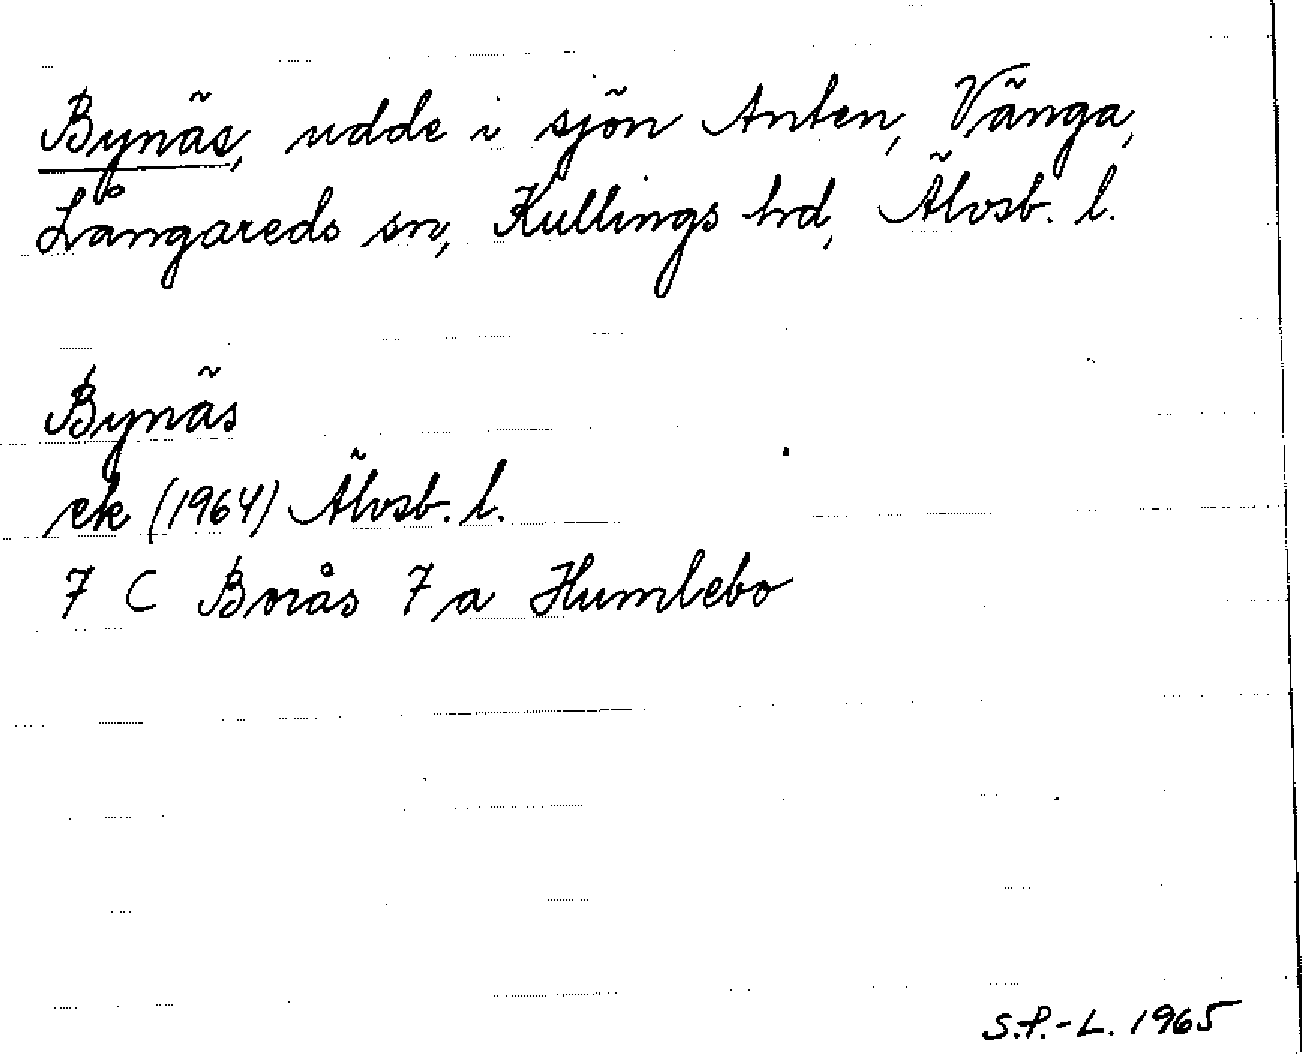 Bynäs, udde i sjön Anten, Vänga,
Långareds sn, Kullings hd, Älvsb. l.
Bynäs
ek (1964) Älvsb. l.
7 C Borås 7 a Humlebo
S.P.-L. 1965